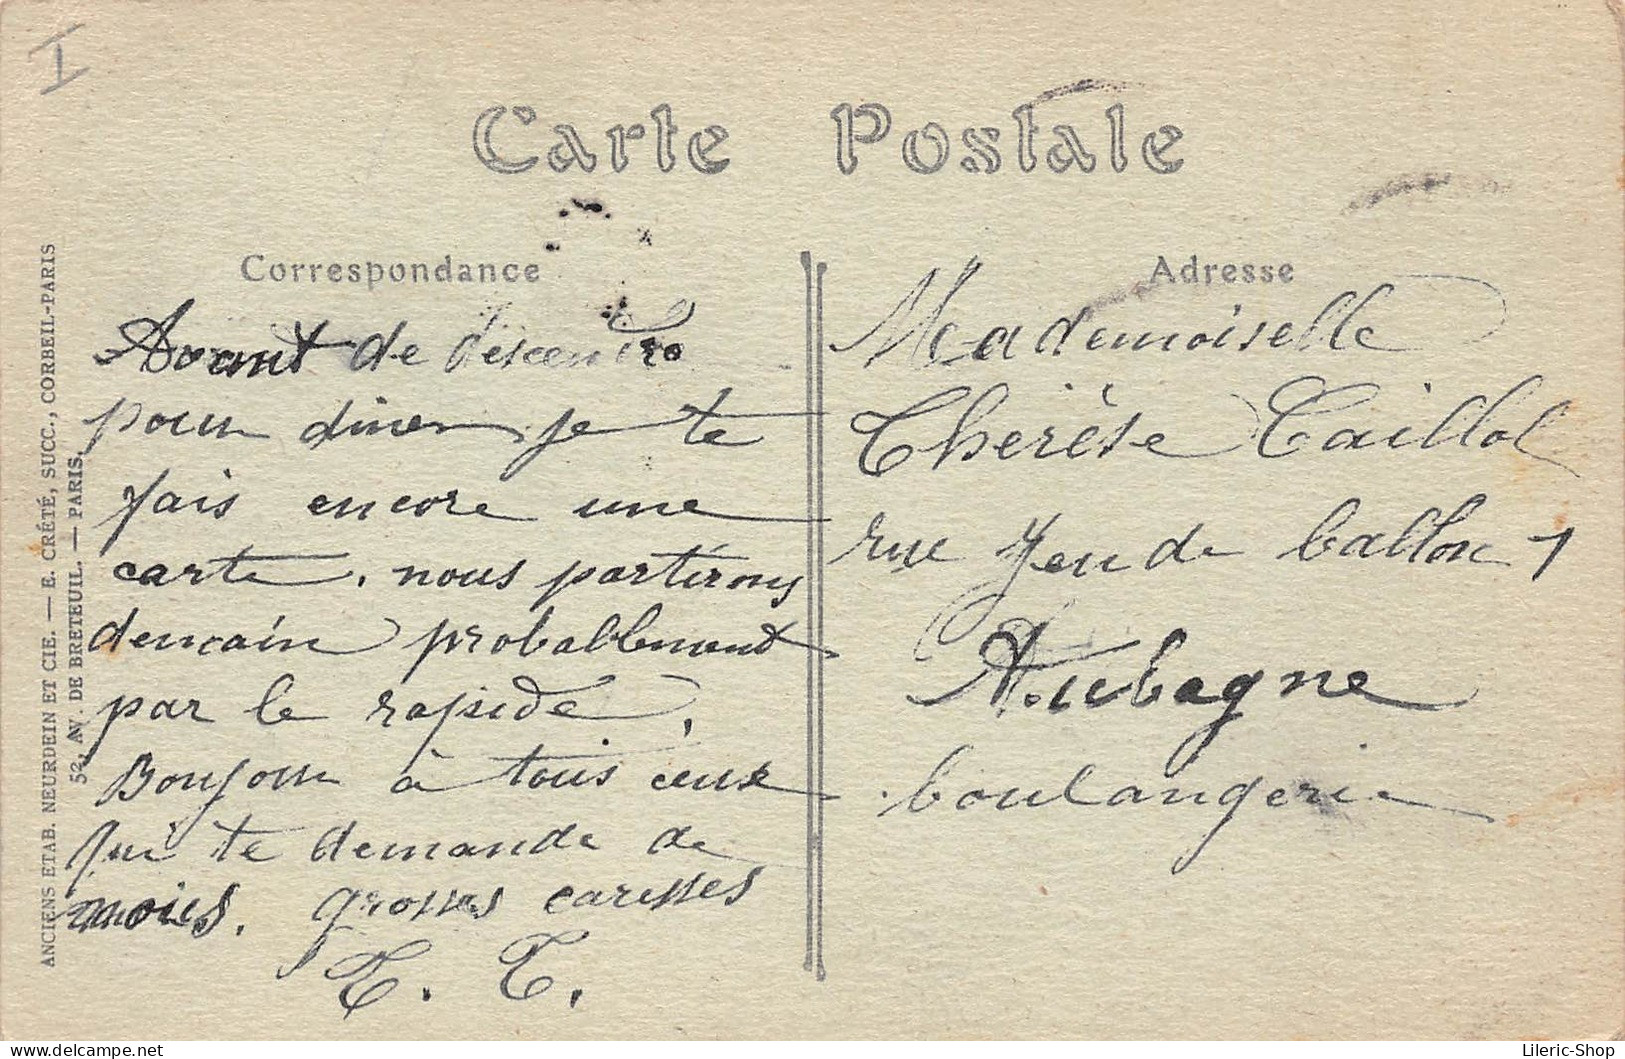 I
Carte Postale
Correspondance
Avant de descendre
pour diner je te
fais encore une
carte. nous partirons
demain probablement
par le rapide.
Bonjour à tous ceux
qui te demande de
moies. grosses caresses
T. T.
Adresse
Mademoiselle
Thérèse Taillol
rue Jeu de ballon 1
Aubagne
boulangerie
ANCIENS ETAB. NEURDEIN ET CIE. — E. CRÉTÉ, SUCC., CORBEIL-PARIS
52, AV. DE BRETEUIL. — PARIS.
Lileric-Shop
www.delcampe.net